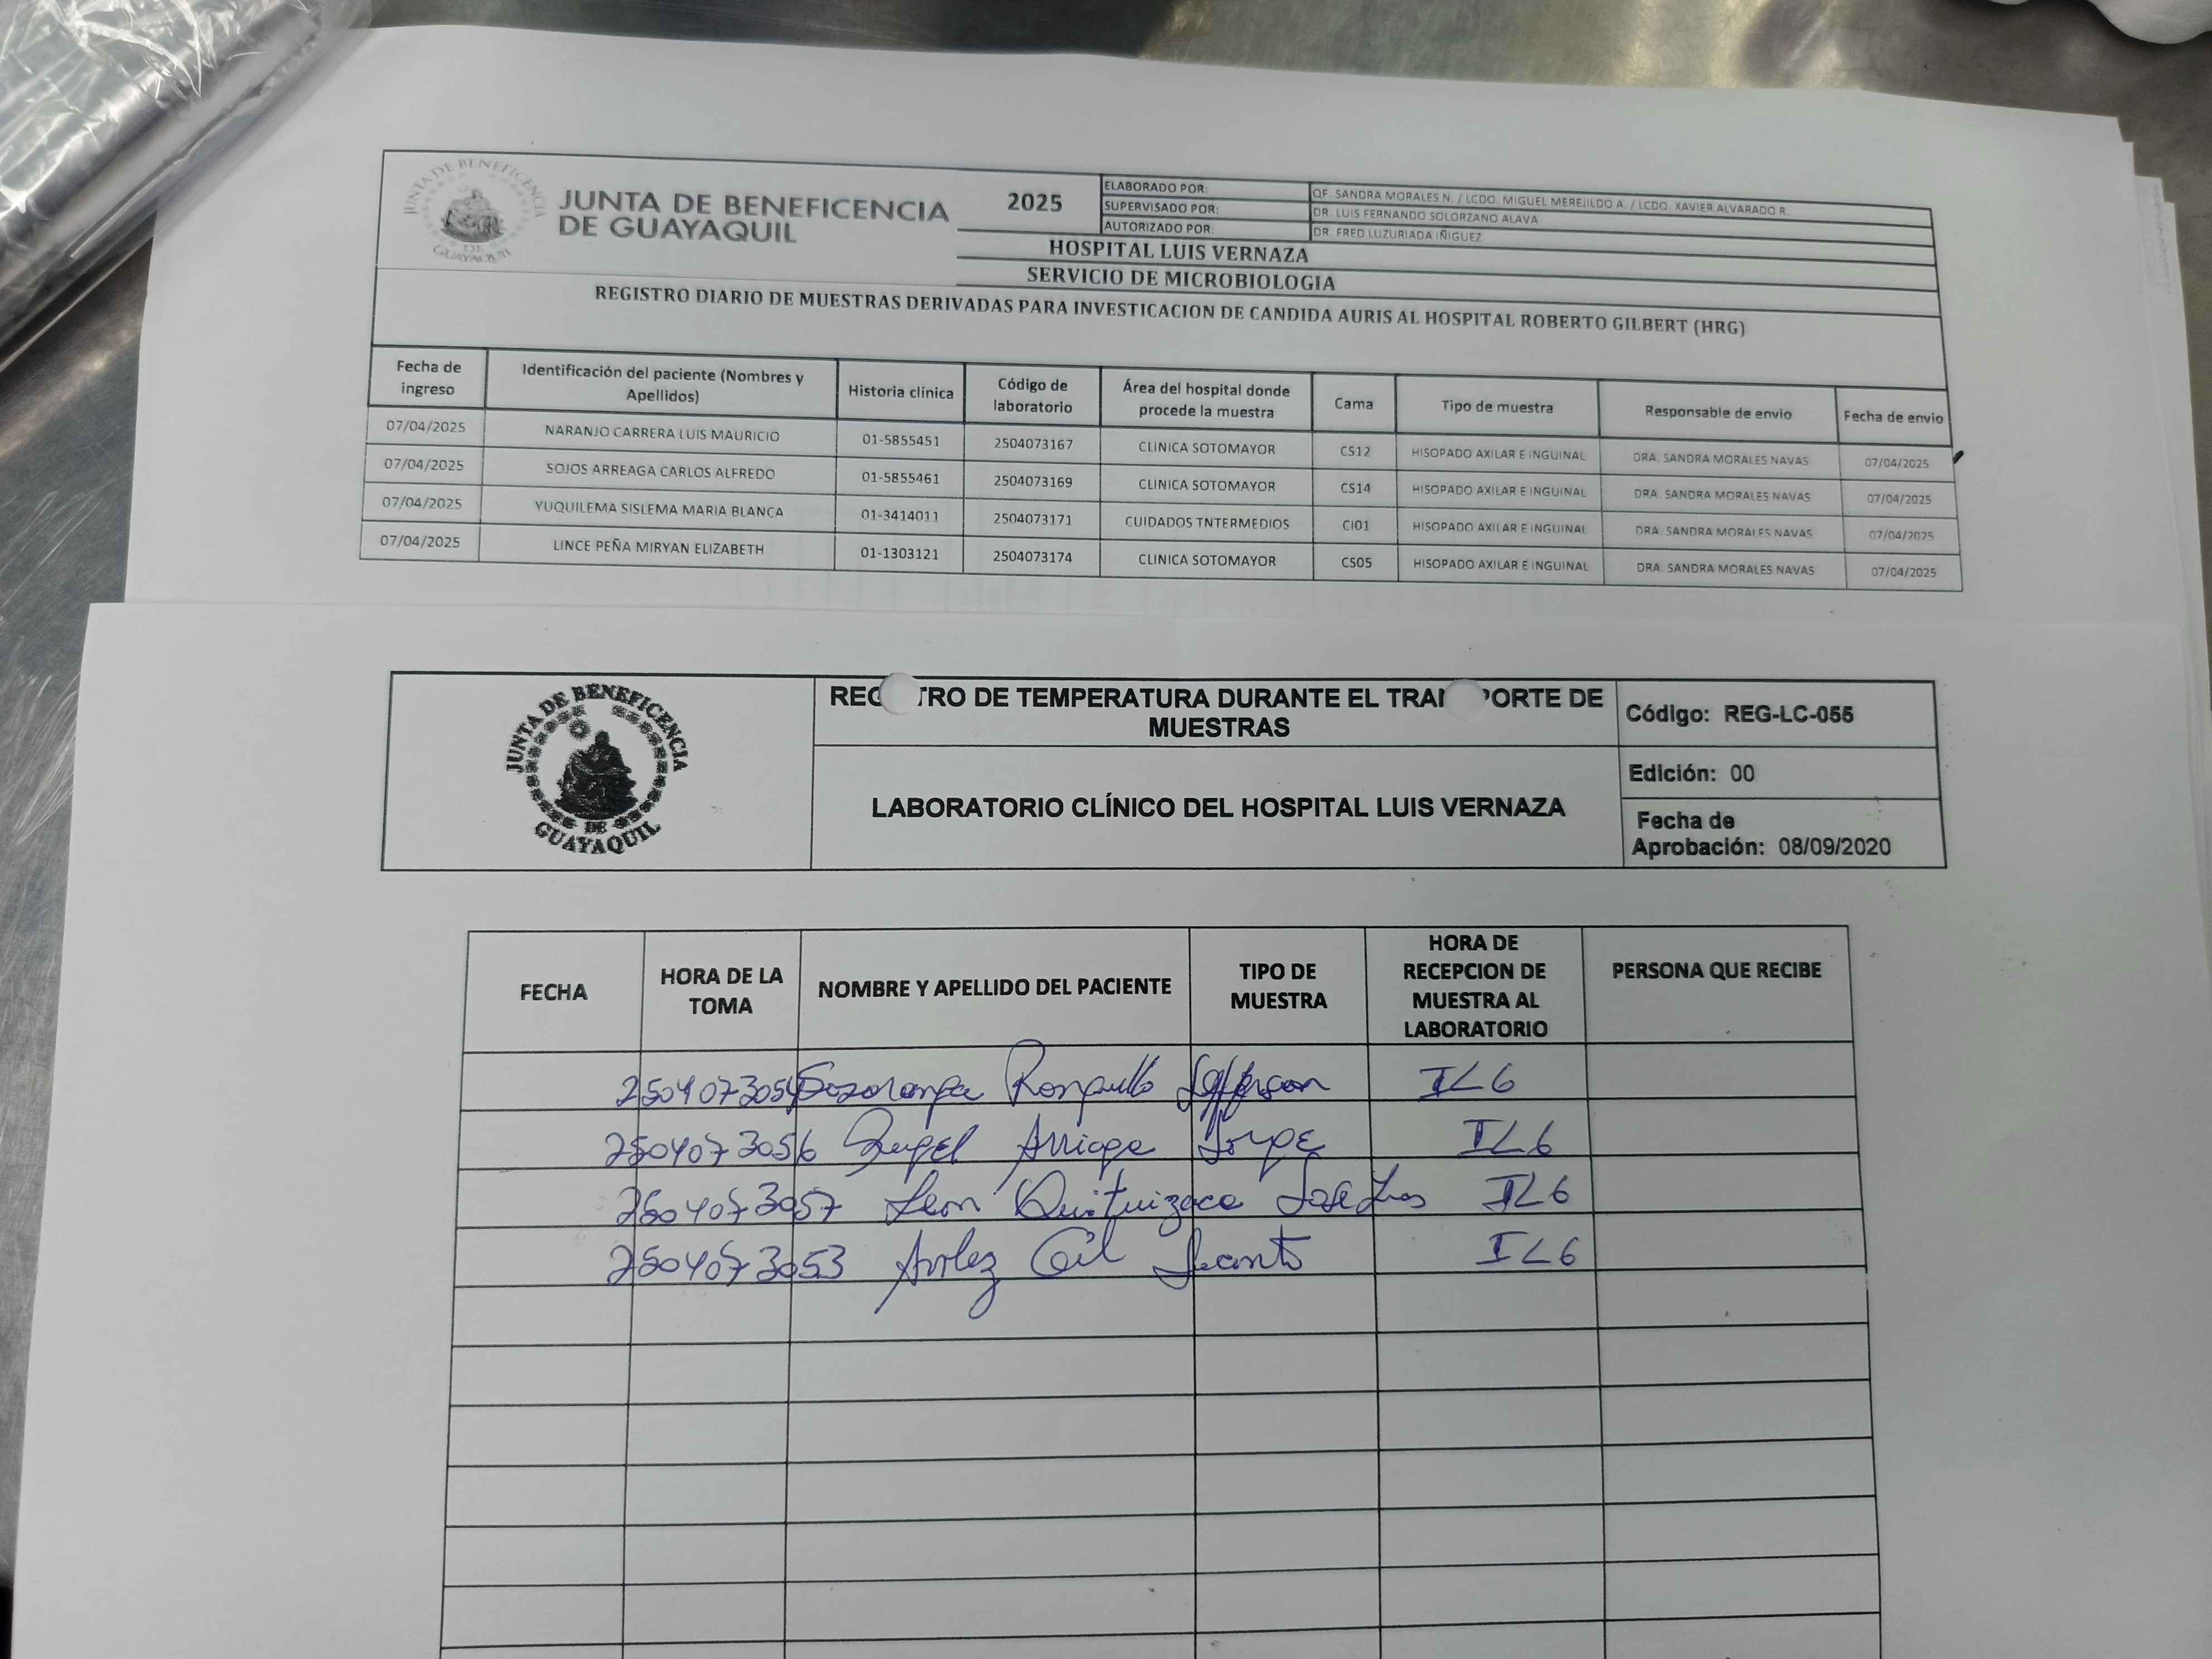 JUNTA DE BENEFICENCIA DE GUAYAQUIL
JUNTA DE BENEFICENCIA
DE GUAYAQUIL
2025
ELABORADO POR: QF. SANDRA MORALES N. / LCDO. MIGUEL MEREJILDO A. / LCDO. XAVIER ALVARADO R.
SUPERVISADO POR: DR. LUIS FERNANDO SOLORZANO ALAVA
AUTORIZADO POR: DR. FRED LUZURIADA IÑIGUEZ
HOSPITAL LUIS VERNAZA
SERVICIO DE MICROBIOLOGIA
REGISTRO DIARIO DE MUESTRAS DERIVADAS PARA INVESTICACION DE CANDIDA AURIS AL HOSPITAL ROBERTO GILBERT (HRG)
Fecha de ingreso Identificación del paciente (Nombres y Apellidos) Historia clínica Código de laboratorio Área del hospital donde procede la muestra Cama Tipo de muestra Responsable de envio Fecha de envio
07/04/2025 NARANJO CARRERA LUIS MAURICIO 01-5855451 2504073167 CLINICA SOTOMAYOR CS12 HISOPADO AXILAR E INGUINAL DRA. SANDRA MORALES NAVAS 07/04/2025
07/04/2025 SOJOS ARREAGA CARLOS ALFREDO 01-5855461 2504073169 CLINICA SOTOMAYOR CS14 HISOPADO AXILAR E INGUINAL DRA. SANDRA MORALES NAVAS 07/04/2025
07/04/2025 YUQUILEMA SISLEMA MARIA BLANCA 01-3414011 2504073171 CUIDADOS TNTERMEDIOS CI01 HISOPADO AXILAR E INGUINAL DRA. SANDRA MORALES NAVAS 07/04/2025
07/04/2025 LINCE PEÑA MIRYAN ELIZABETH 01-1303121 2504073174 CLINICA SOTOMAYOR CS05 HISOPADO AXILAR E INGUINAL DRA. SANDRA MORALES NAVAS 07/04/2025
JUNTA DE BENEFICENCIA DE GUAYAQUIL
REG TRO DE TEMPERATURA DURANTE EL TRAN PORTE DE
MUESTRAS
LABORATORIO CLÍNICO DEL HOSPITAL LUIS VERNAZA
Código: REG-LC-055
Edición: 00
Fecha de
Aprobación: 08/09/2020
FECHA HORA DE LA TOMA NOMBRE Y APELLIDO DEL PACIENTE TIPO DE MUESTRA HORA DE RECEPCION DE MUESTRA AL LABORATORIO PERSONA QUE RECIBE
2504073054 Jefferson IL6
2504073056 Arriaga Jorge IL6
2504073057 Leon Quituizaca Jose Luis IL6
2504073053 Gil IL6